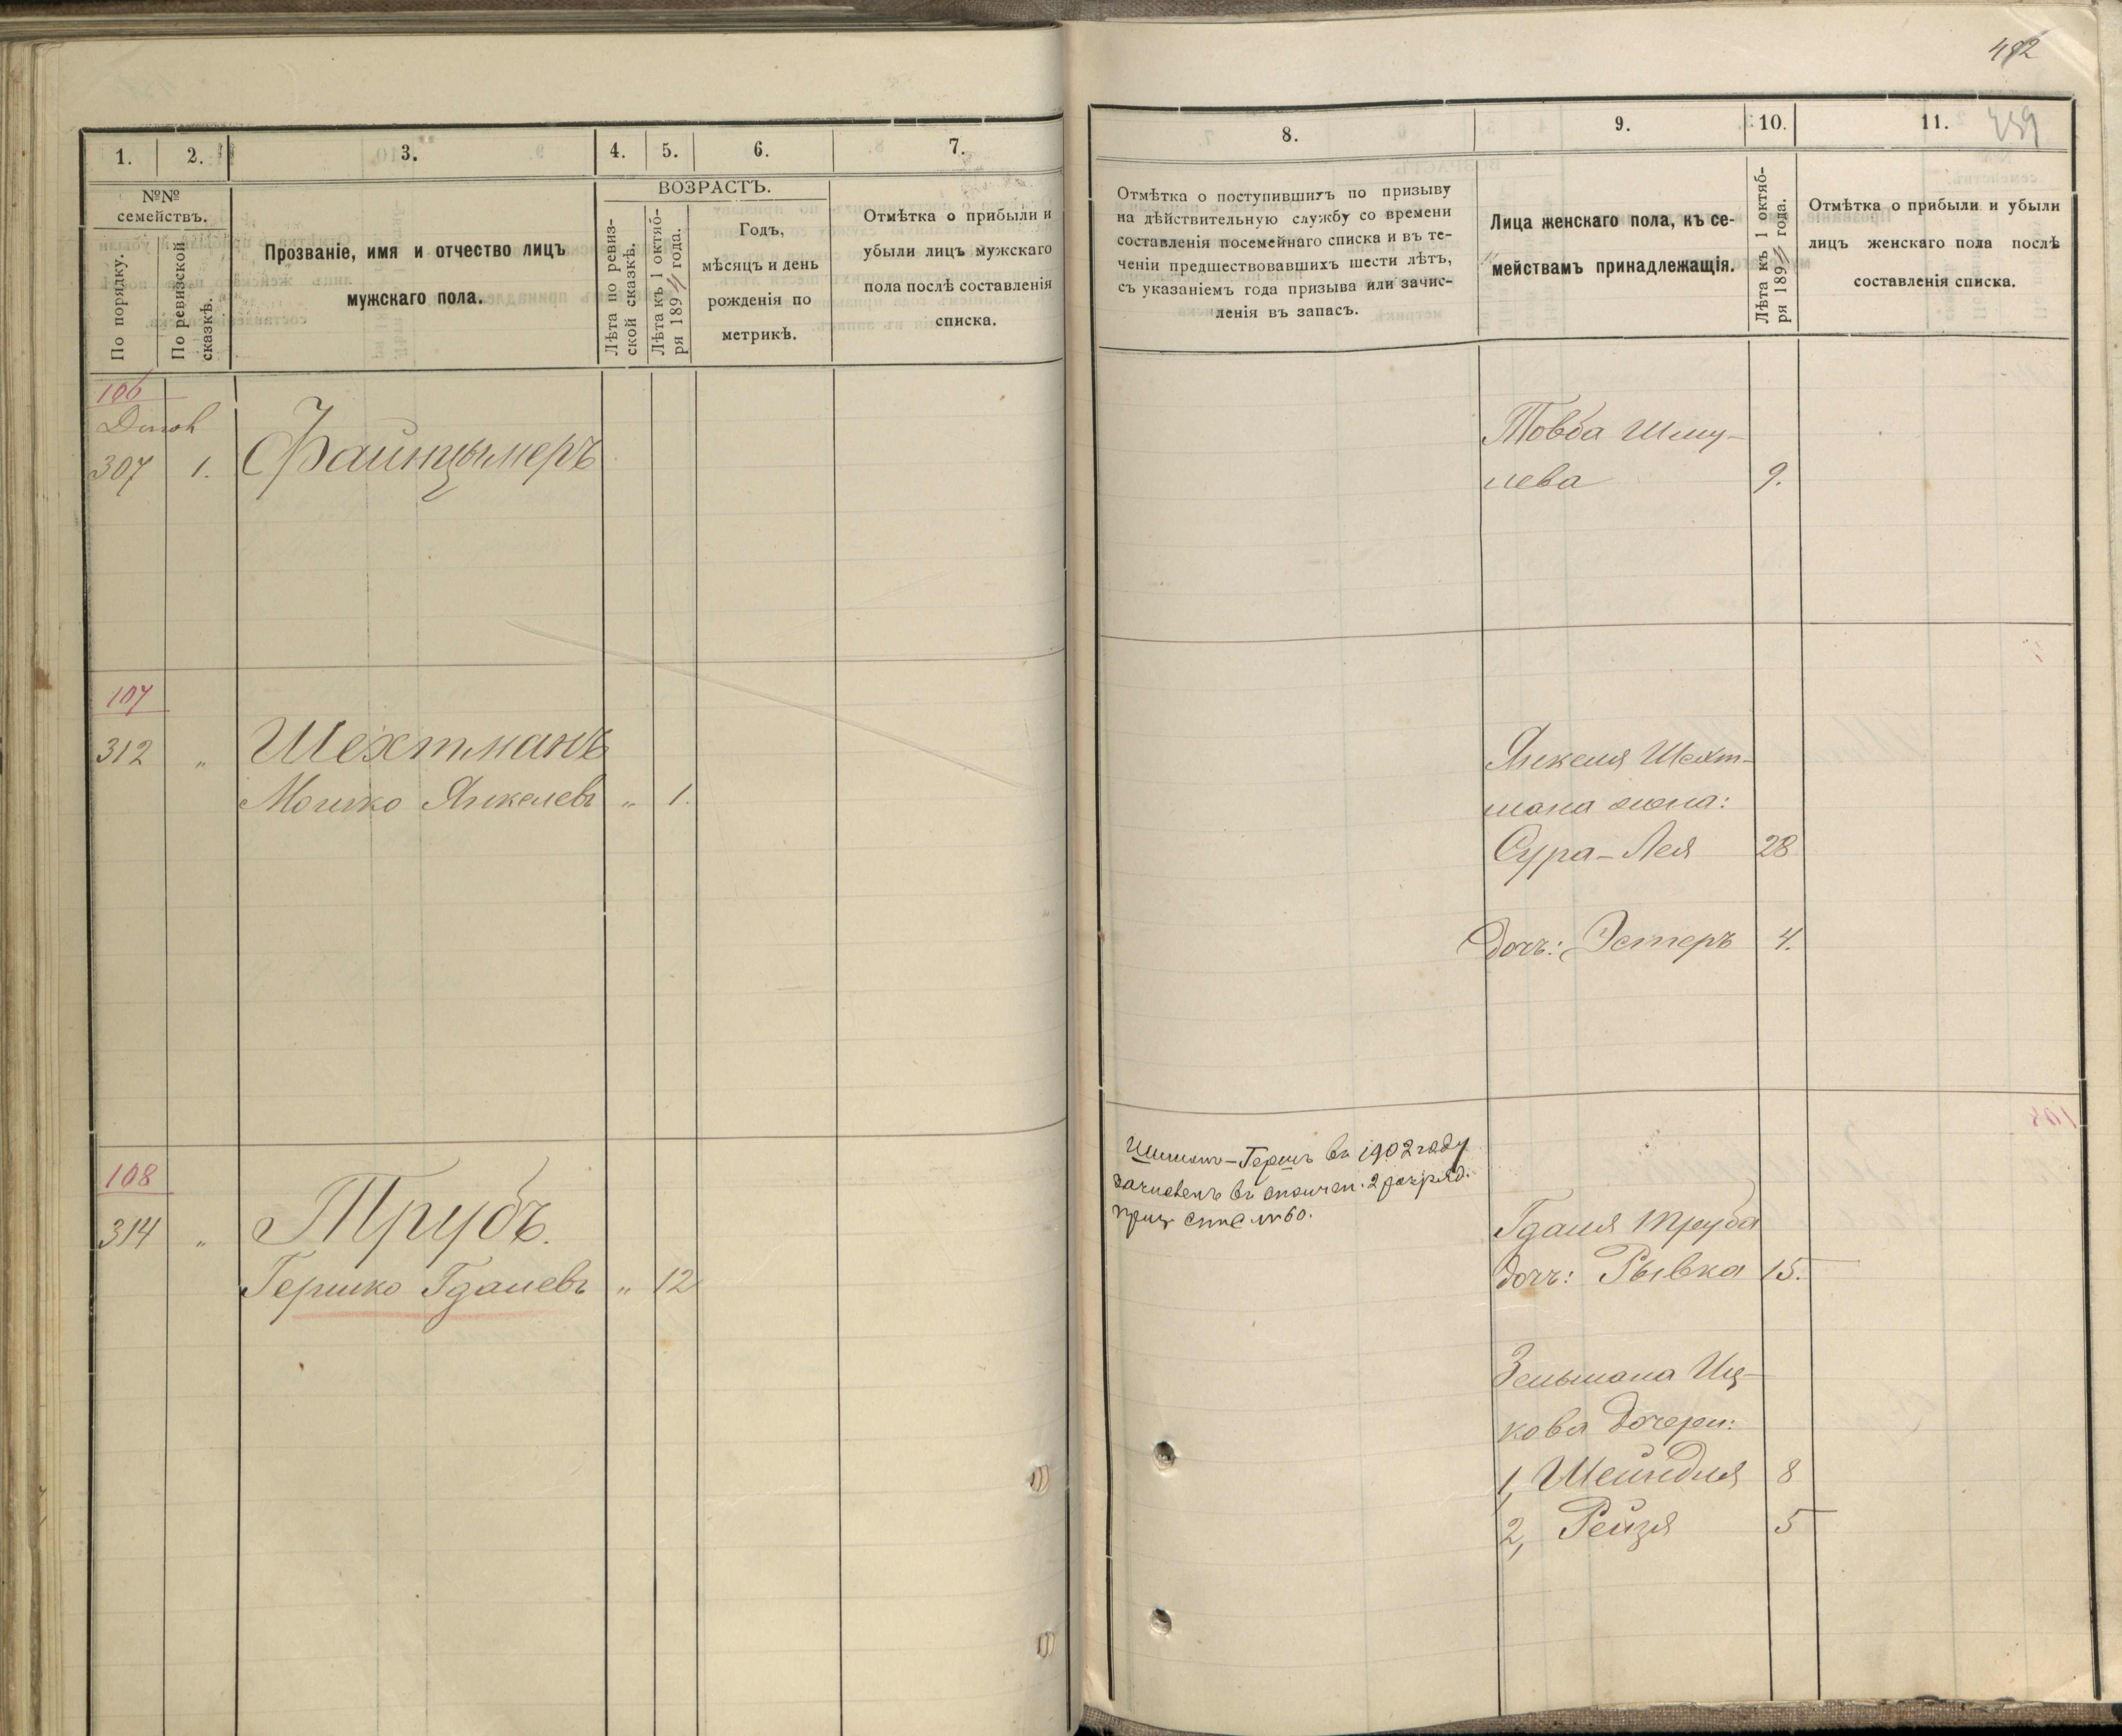 1. 2. 3. 4. 5. 6. 7.
№№
семействъ.
По порядку.
По ревизской
сказкѣ.
Прозваніе, имя и отчество лицъ
мужскаго пола.
ВОЗРАСТЪ.
Лѣта по ревиз-
ской сказкѣ.
Лѣта къ 1 октяб-
ря 189 года.
Годъ,
мѣсяцъ и день
рожденія по
метрикѣ.
Отмѣтка о прибыли и
убыли лицъ мужскаго
пола послѣ составленія
списка.
106
307 1. Файнцымеръ
107
312 „ Шехтманъ
Мошко Янкелевъ „ 1.
108
314 „ Трубъ.
Гершко Гдалевъ „ 12
8. 9. 10. 11. 459
Отмѣтка о поступившихъ по призыву
на дѣйствительную службу со времени
составленія посемейнаго списка и въ те-
ченіи предшествовавшихъ шести лѣтъ,
съ указаніемъ года призыва или зачис-
ленія въ запасъ.
Лица женскаго пола, къ се-
мействамъ принадлежащія.
Лѣта къ 1 октяб-
ря 189 года.
Отмѣтка о прибыли и убыли
лицъ женскаго пола послѣ
составленія списка.
Товба Шму-
лева 9.
Янкеля Шехт-
мана жена:
Сура-Лея 28
дочь: Эстеръ 4.
Гершъ въ 1902 году
зачисленъ въ ополчен. 2 разряд.
№ 60.
Гдаля Труба
дочь: Рывка 15.
Зельмана Иц-
кова дочери:
1, Шейндля 8
2, Рейзя 5